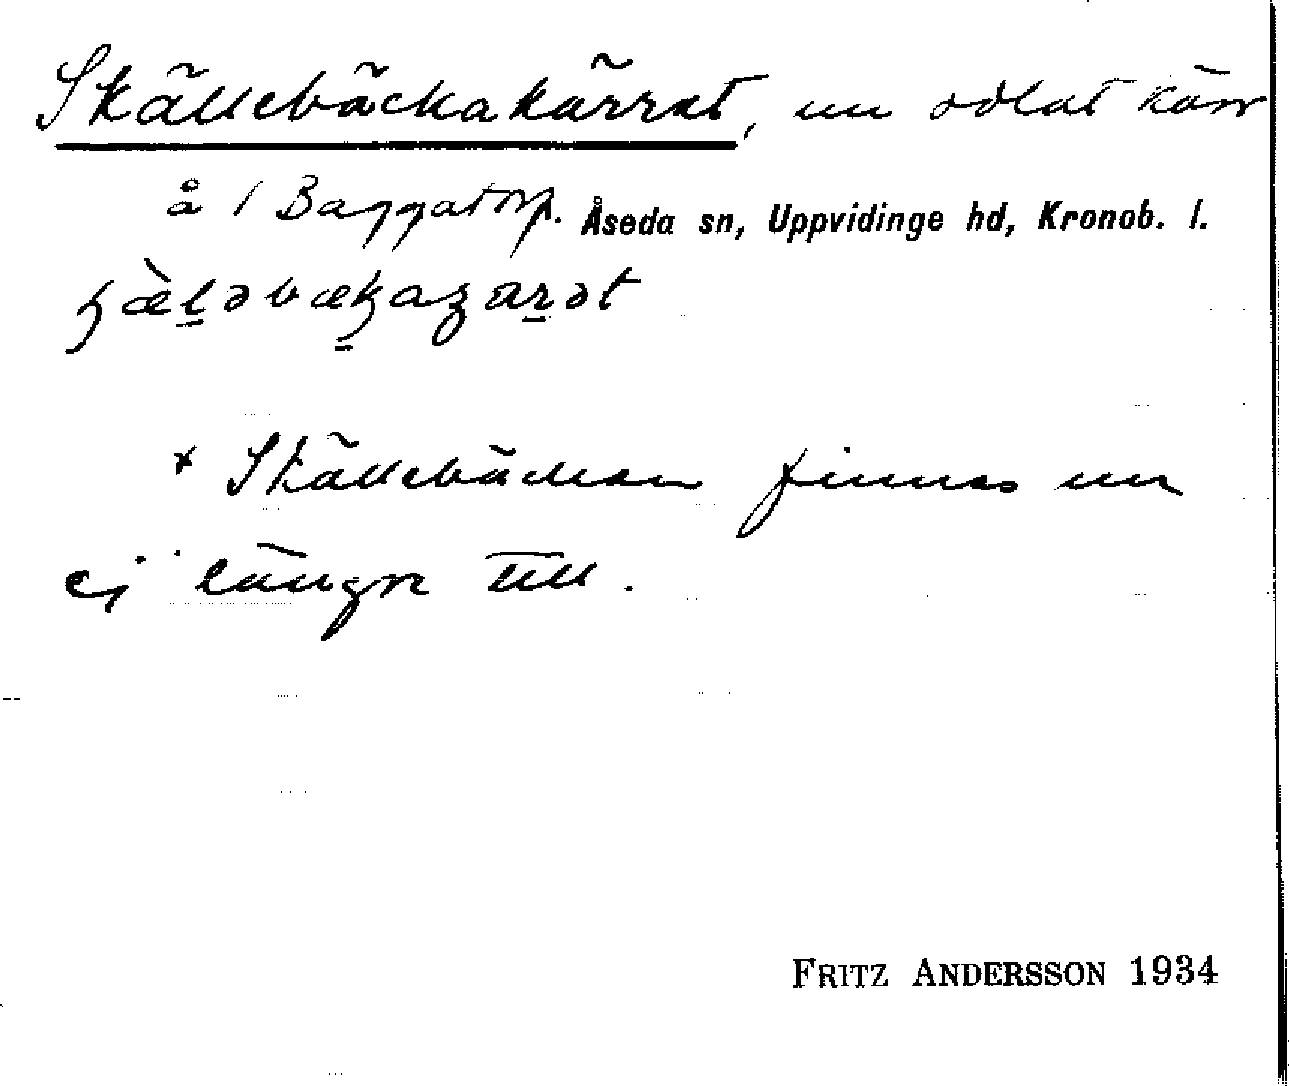 Skällebäckakärret, nu odlat kärr
å 1 Baggatorp. Åseda sn, Uppvidinge hd, Kronob. l.
* Skällebäcken finnes nu
ej längre till.
FRITZ ANDERSSON 1934